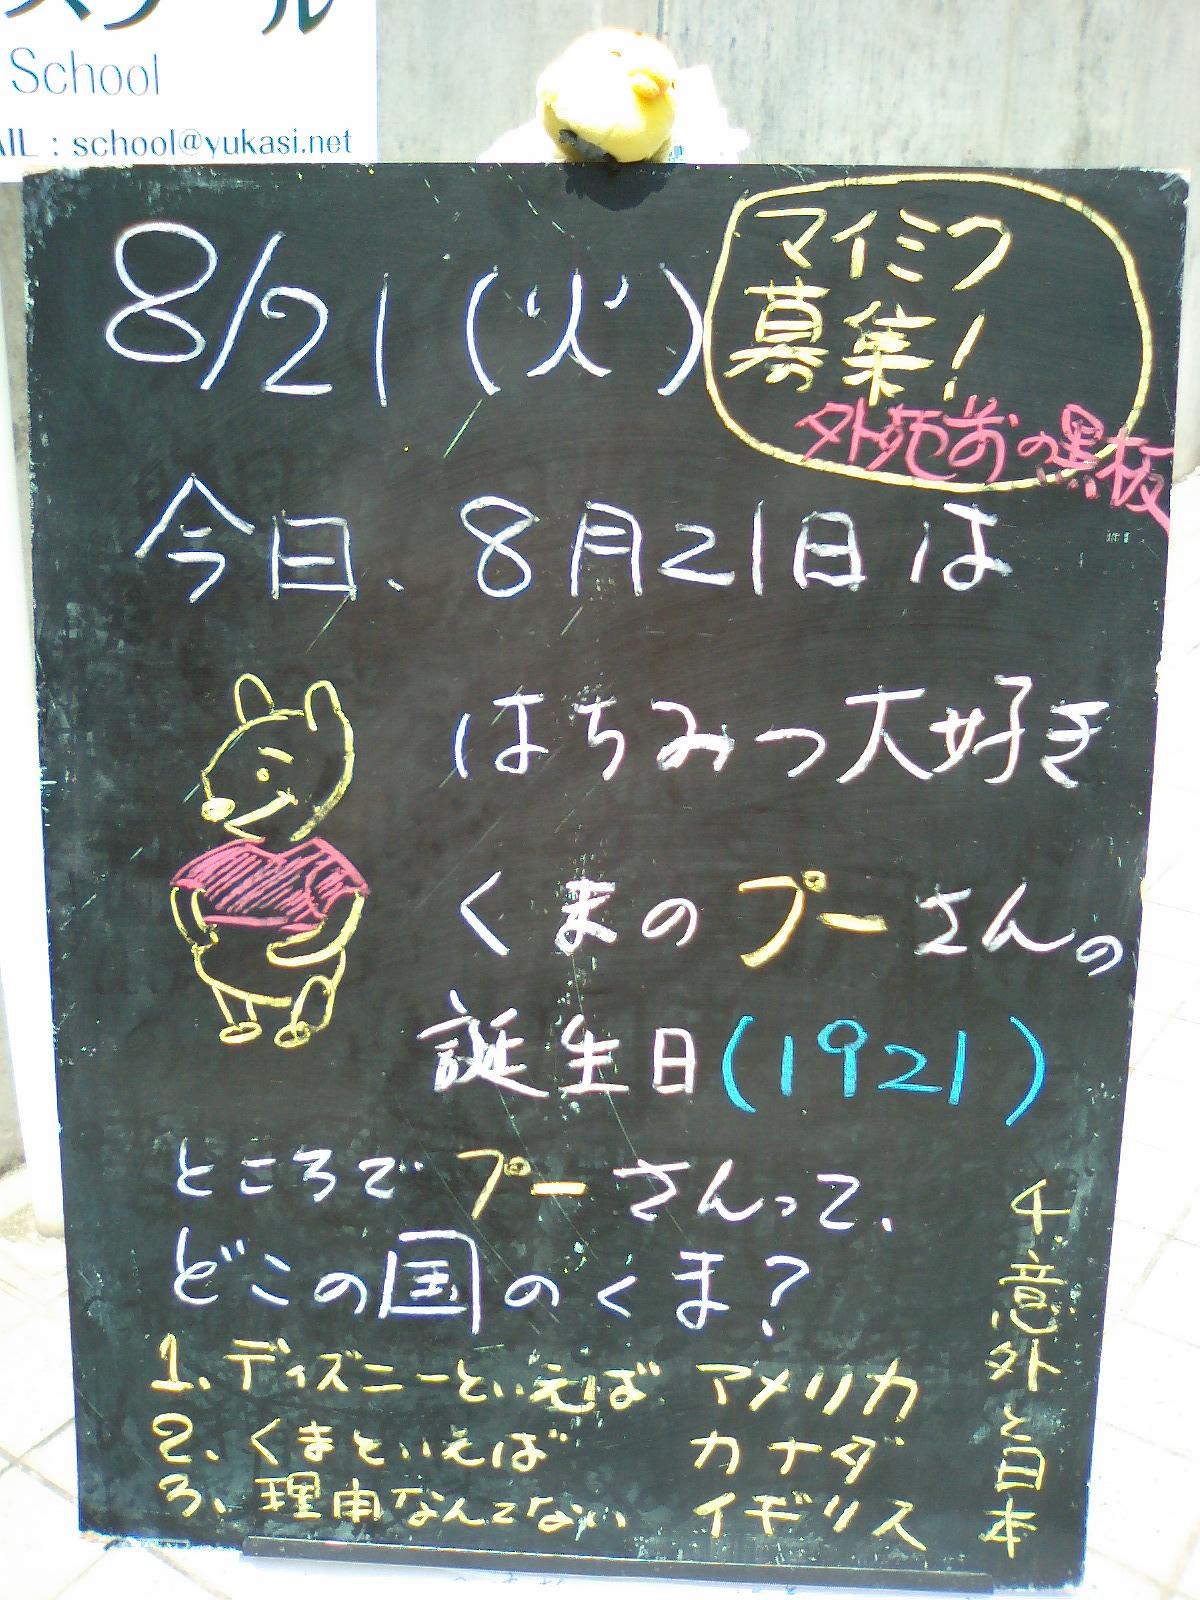 スクール
School
AIL : school@yukasi.net
8/21 (火)
マイミク
募集!
外苑前の黒板
今日、8月21日は
はちみつ大好き
くまのプーさんの
誕生日(1921)
ところでプーさんって、
どこの国のくま?
1、ディズニーといえば アメリカ
2、くまといえば カナダ
3、理由なんてない イギリス
4、意外と日本